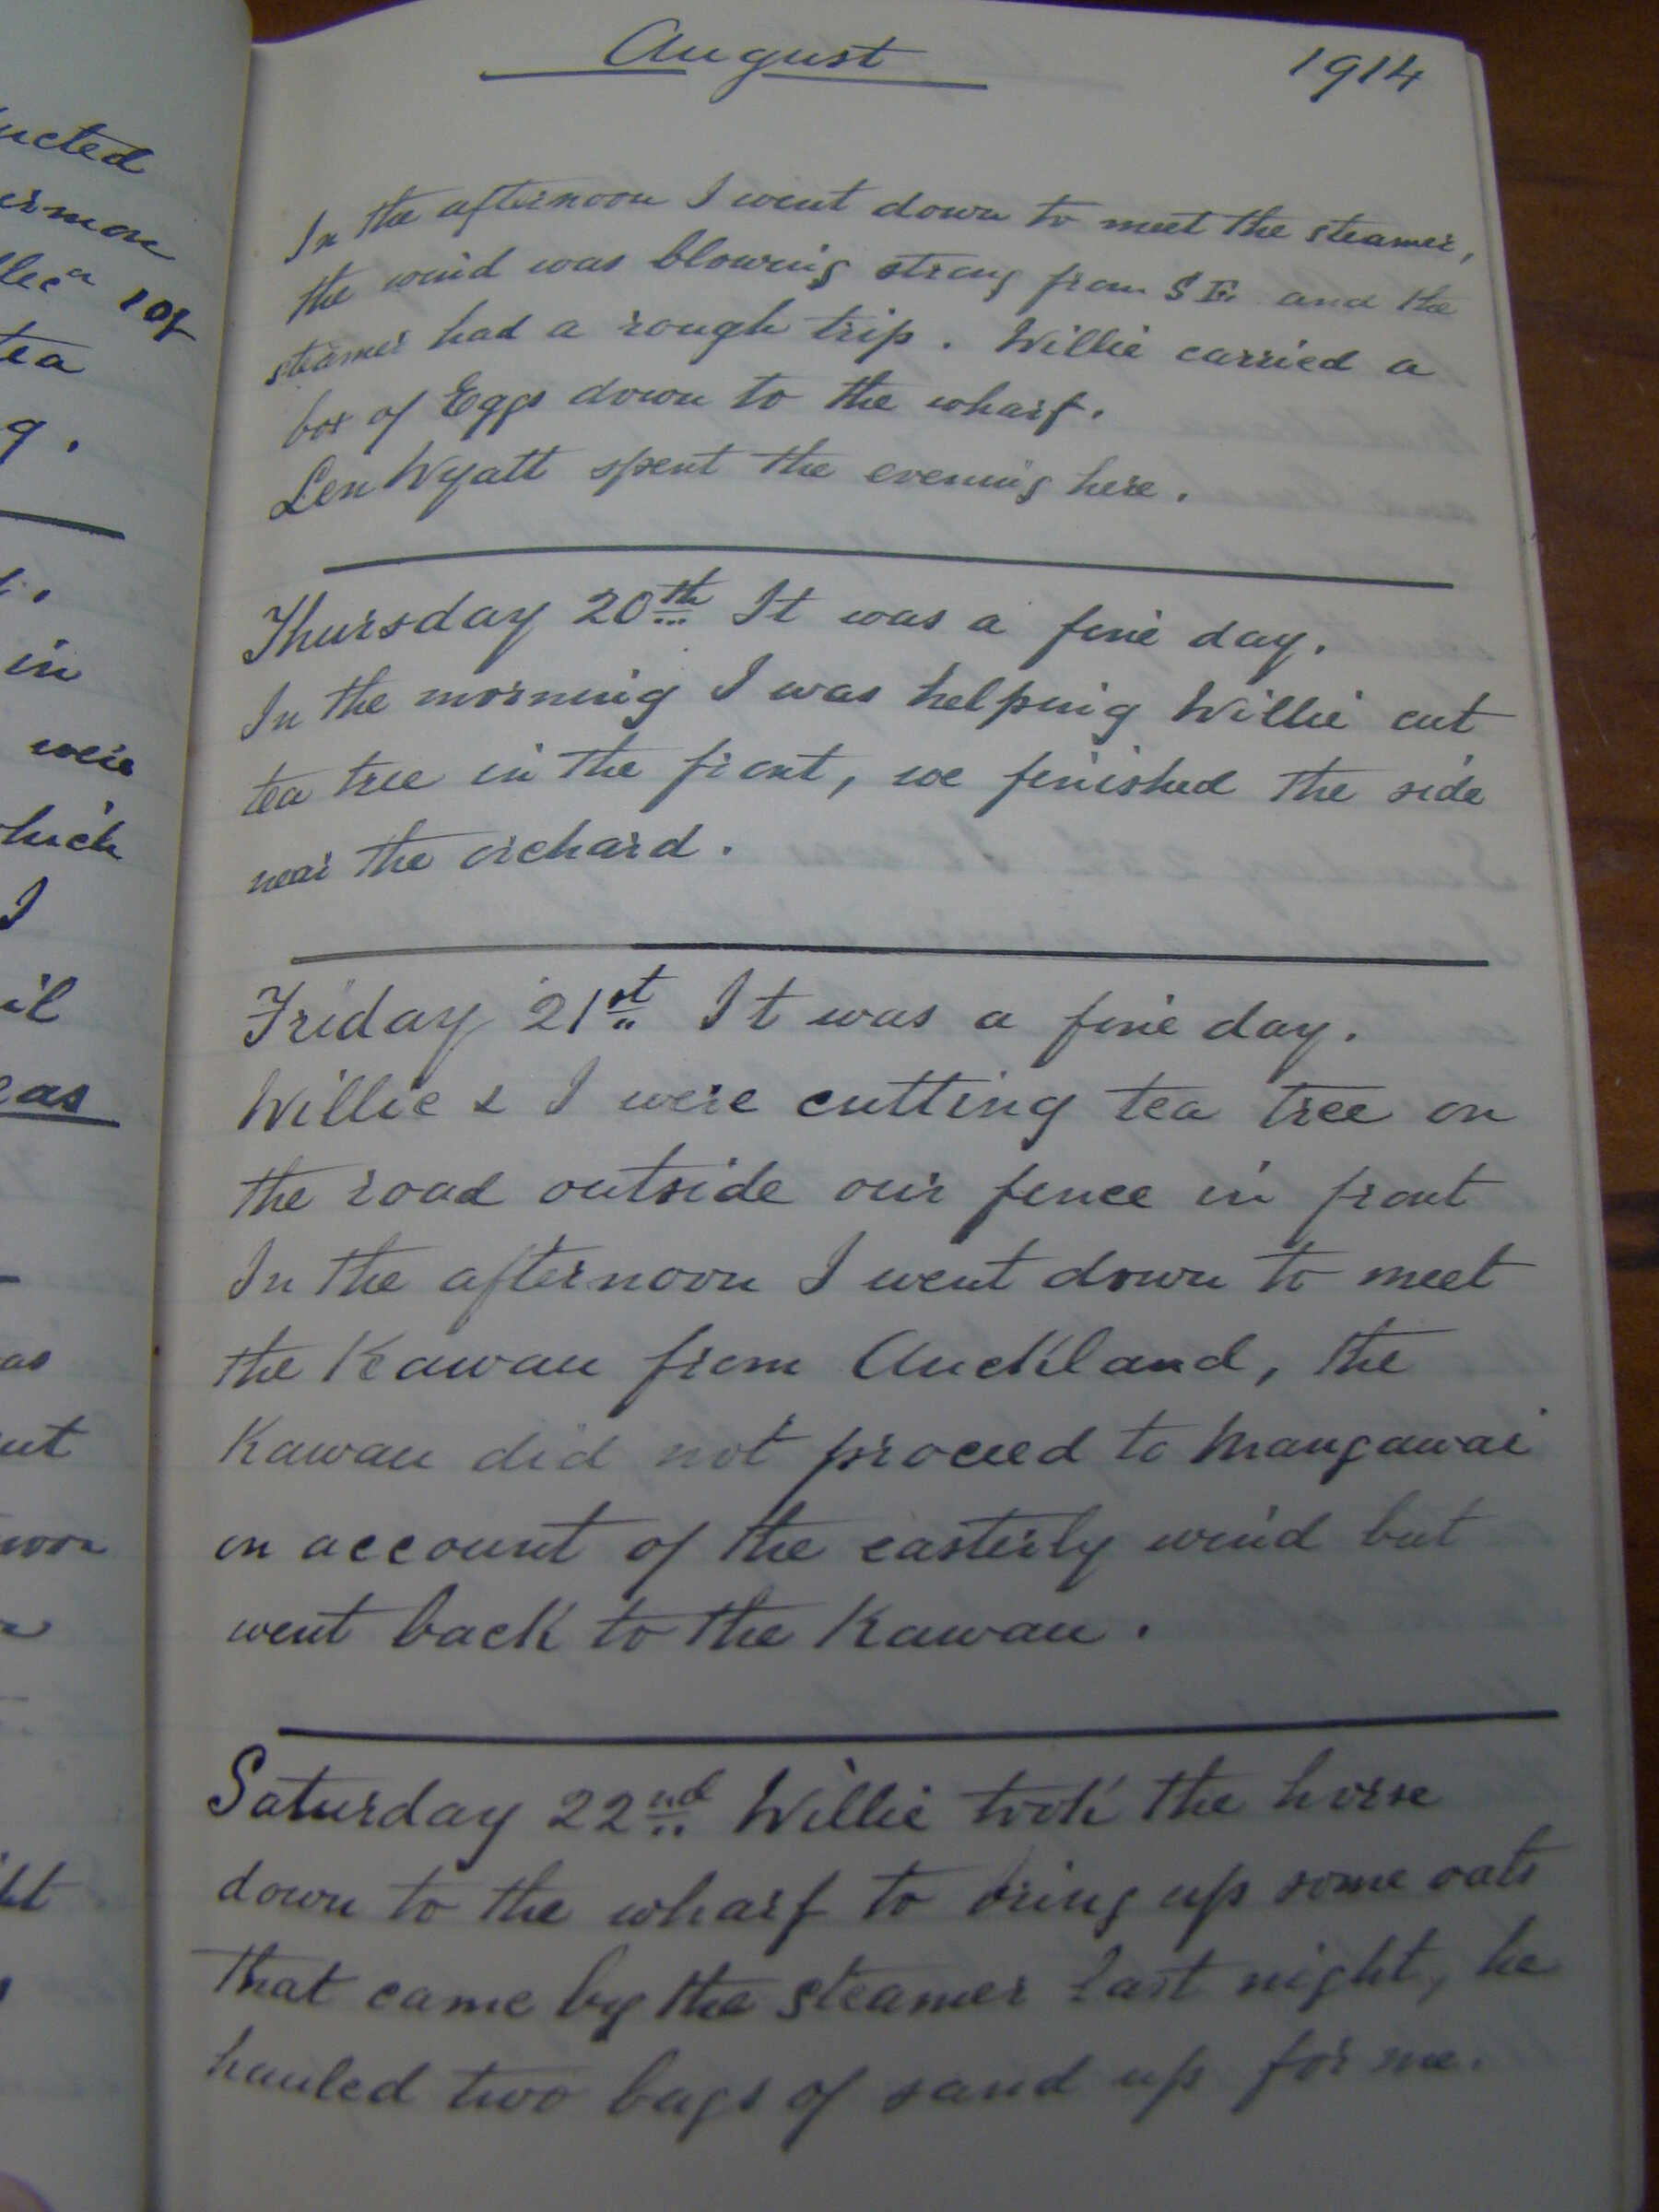 August 1914
In the afternoon I went down to meet the steamer,
the wind was blowing strong from S E. and the
steamer had a rough trip. Willie carried a
box of Eggs down to the wharf.
Len Wyatt spent the evening here.
Thursday 20th It was a fine day.
In the morning I was helping Willie cut
tea tree in the front, we finished the side
near the orchard.
Friday 21st It was a fine day.
Willie & I were cutting tea tree on
the road outside our fence in front
In the afternoon I went down to meet
the Kawau from Auckland, the
Kawau did not proceed to Mangawai
on account of the easterly wind but
went back to the Kawau.
Saturday 22nd Willie took the horse
down to the wharf to bring up some oats
that came by the steamer last night, he
hauled two bags of sand up for me.
ucted
ermon
10/
tea
g.
in
were
hich
I
il
as
as
ut
noon